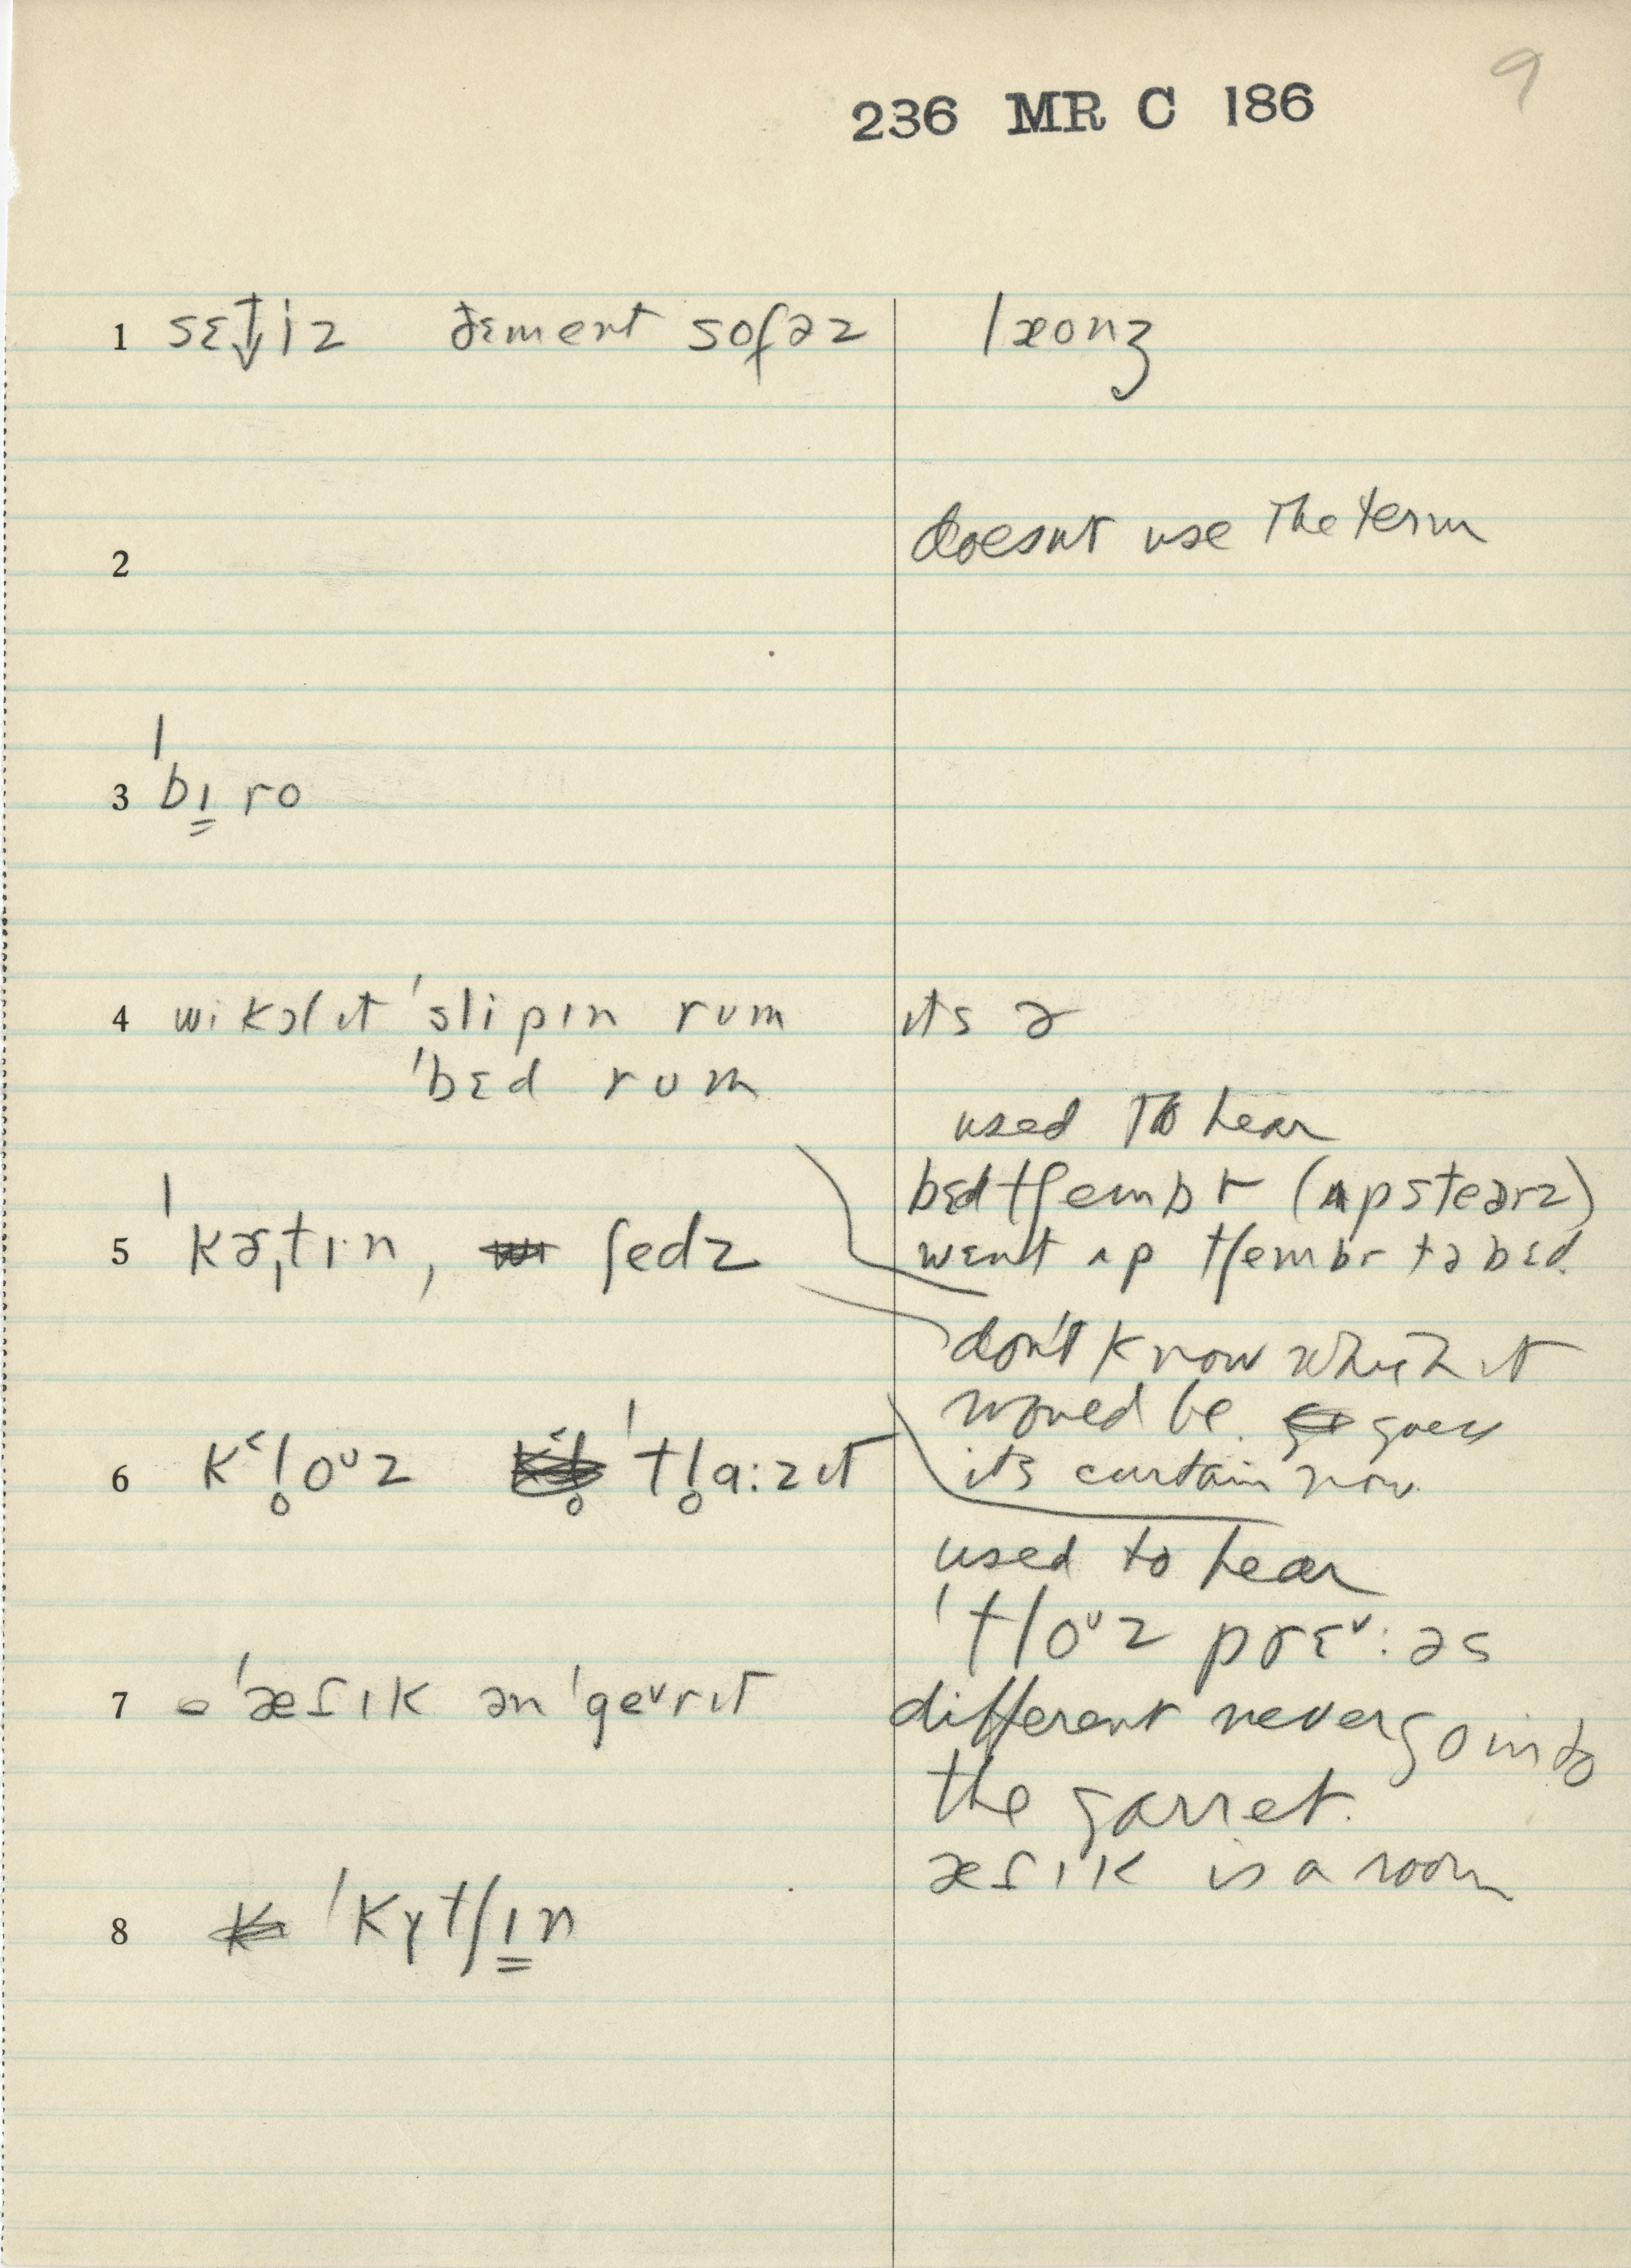 9
236 MR C 186
1 sɛt̬iz ðɛment sofəz lxonʒ
2 doesnt use The term
3 ˈbɪ̳ro
4 wikɔlɪt ˈslipɪn rum its ə
ˈbɛd rum
used To hear
bɛdtʃembr (ʌpsteərz)
5 ˈkɚˌtɪ·n, ʃedz
wɛnt ʌp tʃembr tə bɛd.
don't know which it
would be. guess
its curtain now
6 k˂l̥oᵘz ˈtl̥a:zɪt
used to hear
ˈtloᵘz prɛ˅:əs
7 ə ˈæſɪk ən ˈge˅rɪt
different never go into
the garret.
æſɪk is a room
8 ˈkʏtʃɪ̳n